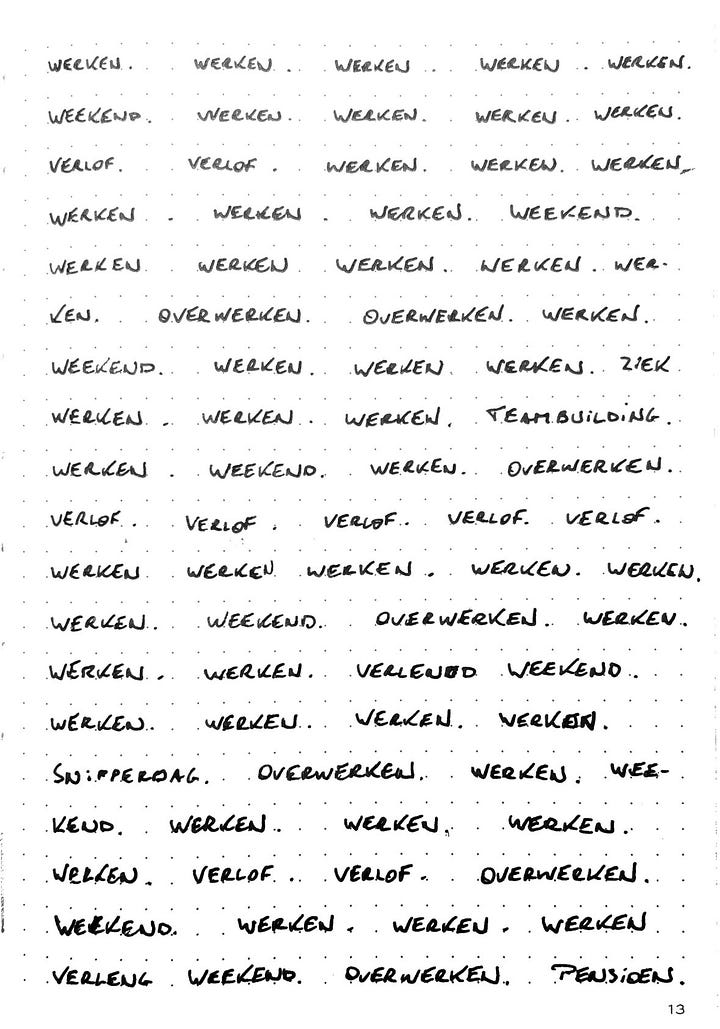 WERKEN. WERKEN. WERKEN. WERKEN. WERKEN.
WEEKEND. WERKEN. WERKEN. WERKEN. WERKEN.
VERLOF. VERLOF. WERKEN. WERKEN. WERKEN.
WERKEN. WERKEN. WERKEN. WEEKEND.
WERKEN WERKEN WERKEN. WERKEN. WER-
KEN. OVERWERKEN. OVERWERKEN. WERKEN.
WEEKEND. WERKEN. WERKEN. WERKEN. ZIEK
WERKEN. WERKEN. WERKEN. TEAMBUILDING.
WERKEN. WEEKEND. WERKEN. OVERWERKEN.
VERLOF. VERLOF. VERLOF. VERLOF. VERLOF.
WERKEN WERKEN WERKEN. WERKEN. WERKEN.
WERKEN. WEEKEND. OVERWERKEN. WERKEN.
WERKEN. WERKEN. VERLENGD WEEKEND.
WERKEN. WERKEN. WERKEN. WERKEN.
SNIPPERDAG. OVERWERKEN. WERKEN. WEE-
KEND. WERKEN. WERKEN. WERKEN.
WERKEN. VERLOF. VERLOF. OVERWERKEN.
WEEKEND. WERKEN. WERKEN. WERKEN
VERLENG WEEKEND. OVERWERKEN. PENSIOEN.
13